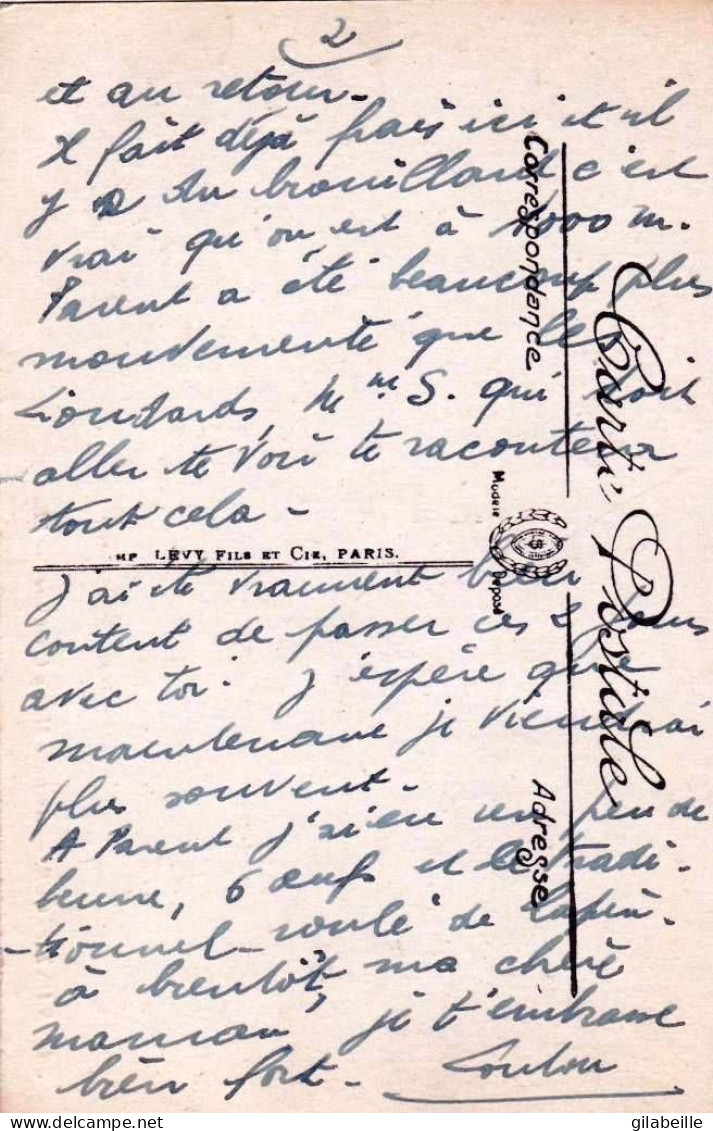 2
et au retour -
Il fait déjà frais ici et il
y a du brouillard c'est
vrai qu'on est à 1000 m.
Parent a été beaucoup plus
mouvementé que les
M me S. qui doit
aller te voir te racontera
tout cela -
J'ai été vraiment bien
content de passer ces 2 jours
avec toi. J'espère que
maintenant je viendrai
plus souvent -
A Parent j'ai eu un peu de
beurre, 6 œufs et le tradi-
tionnel roulé de lapin -
à bientôt, ma chère
maman, je t'embrasse
bien fort - Loulou
IMP. LEVY FILS ET CIE, PARIS.
Correspondance
Carte Postale
Modèle Déposé
Adresse
gilabeille